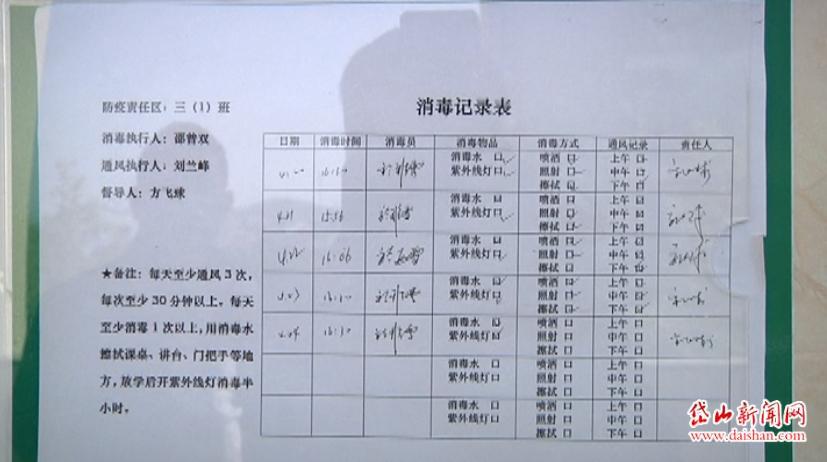 消毒记录表
防疫责任区：三（1）班
消毒执行人：邵曾双
通风执行人：刘兰峰
督导人：方飞球
★备注：每天至少通风3次，
每次至少30分钟以上。每天
至少消毒1次以上，用消毒水
擦拭课桌、讲台、门把手等地
方，放学后开紫外线灯消毒半
小时。
日期 消毒时间 消毒员 消毒物品 消毒方式 通风记录 责任人
消毒水 口 喷洒 口 上午 口
紫外线灯口 照射 口 中午 口
擦拭 口 下午 口
4.21 15:56
消毒水 口 喷洒 口 上午 口
紫外线灯口 照射 口 中午 口
擦拭 口 下午 口
4.22 16:06
消毒水 口 喷洒 口 上午 口
紫外线灯口 照射 口 中午 口
擦拭 口 下午 口
4.23 16:10
消毒水 口 喷洒 口 上午 口
紫外线灯口 照射 口 中午 口
擦拭 口 下午 口
消毒水 口 喷洒 口 上午 口
紫外线灯口 照射 口 中午 口
擦拭 口 下午 口
消毒水 口 喷洒 口 上午 口
紫外线灯口 照射 口 中午 口
擦拭 口 下午 口
消毒水 口 喷洒 口 上午 口
紫外线灯口 照射 口 中午 口
擦拭 口 下午 口
岱山新闻网
www.daishan.com